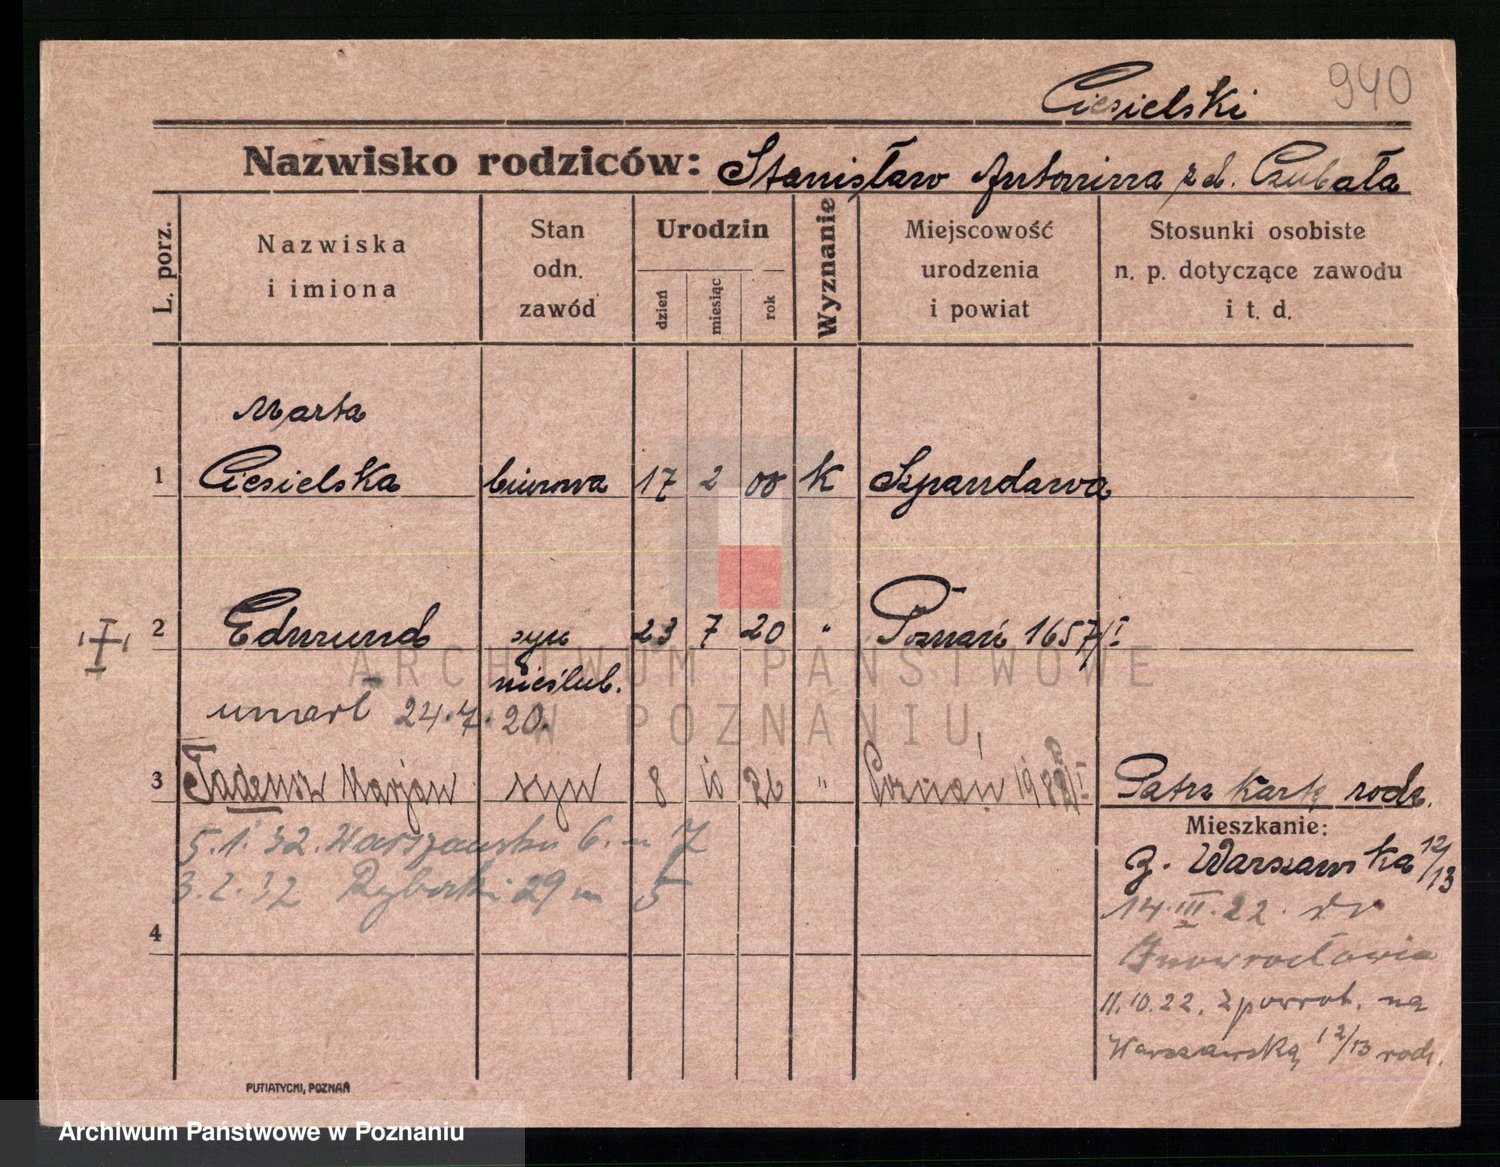 940
Ciesielski
Nazwisko rodziców: Stanisław Antonina z d. Czubała
L. porz.
Nazwiska
i imiona
Stan
odn.
zawód
Urodzin
dzień
miesiąc
rok
Wyznanie
Miejscowość
urodzenia
i powiat
Stosunki osobiste
n. p. dotyczące zawodu
i t. d.
Marta
1 Ciesielska biurowa 17 2 00 K Szpandawa
2 Edmund syn 23 7 20 " Poznań 1657/I
nieślub.
umarł 24.7.20.
3 Tadeusz Marjan syn 8 10 26 " Poznań
Patrz kartę rodz.
Mieszkanie:
5.1.32. Warszawska 6. m 7
3.2.32 Rybaki 29 m 5
4
g. Warszawska 12/13
14.III.22. do
Inowrocławia
11.10.22. z powrot. na
Warszawską 12/13 rodz.
PUTIATYCKI, POZNAŃ
ARCHIWUM PAŃSTWOWE
W POZNANIU
Archiwum Państwowe w Poznaniu